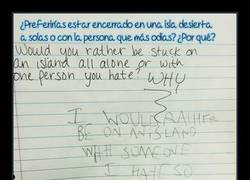 ¿Preferirías estar encerrado en una isla desierta
a solas o con la persona que más odias? ¿Por qué?
Would you rather be stuck on
an island all alone or with
one person you hate? WHY
I WOULD RATHER
BE ON AN ISLAND
WITH SOMEONE
I HATE SO